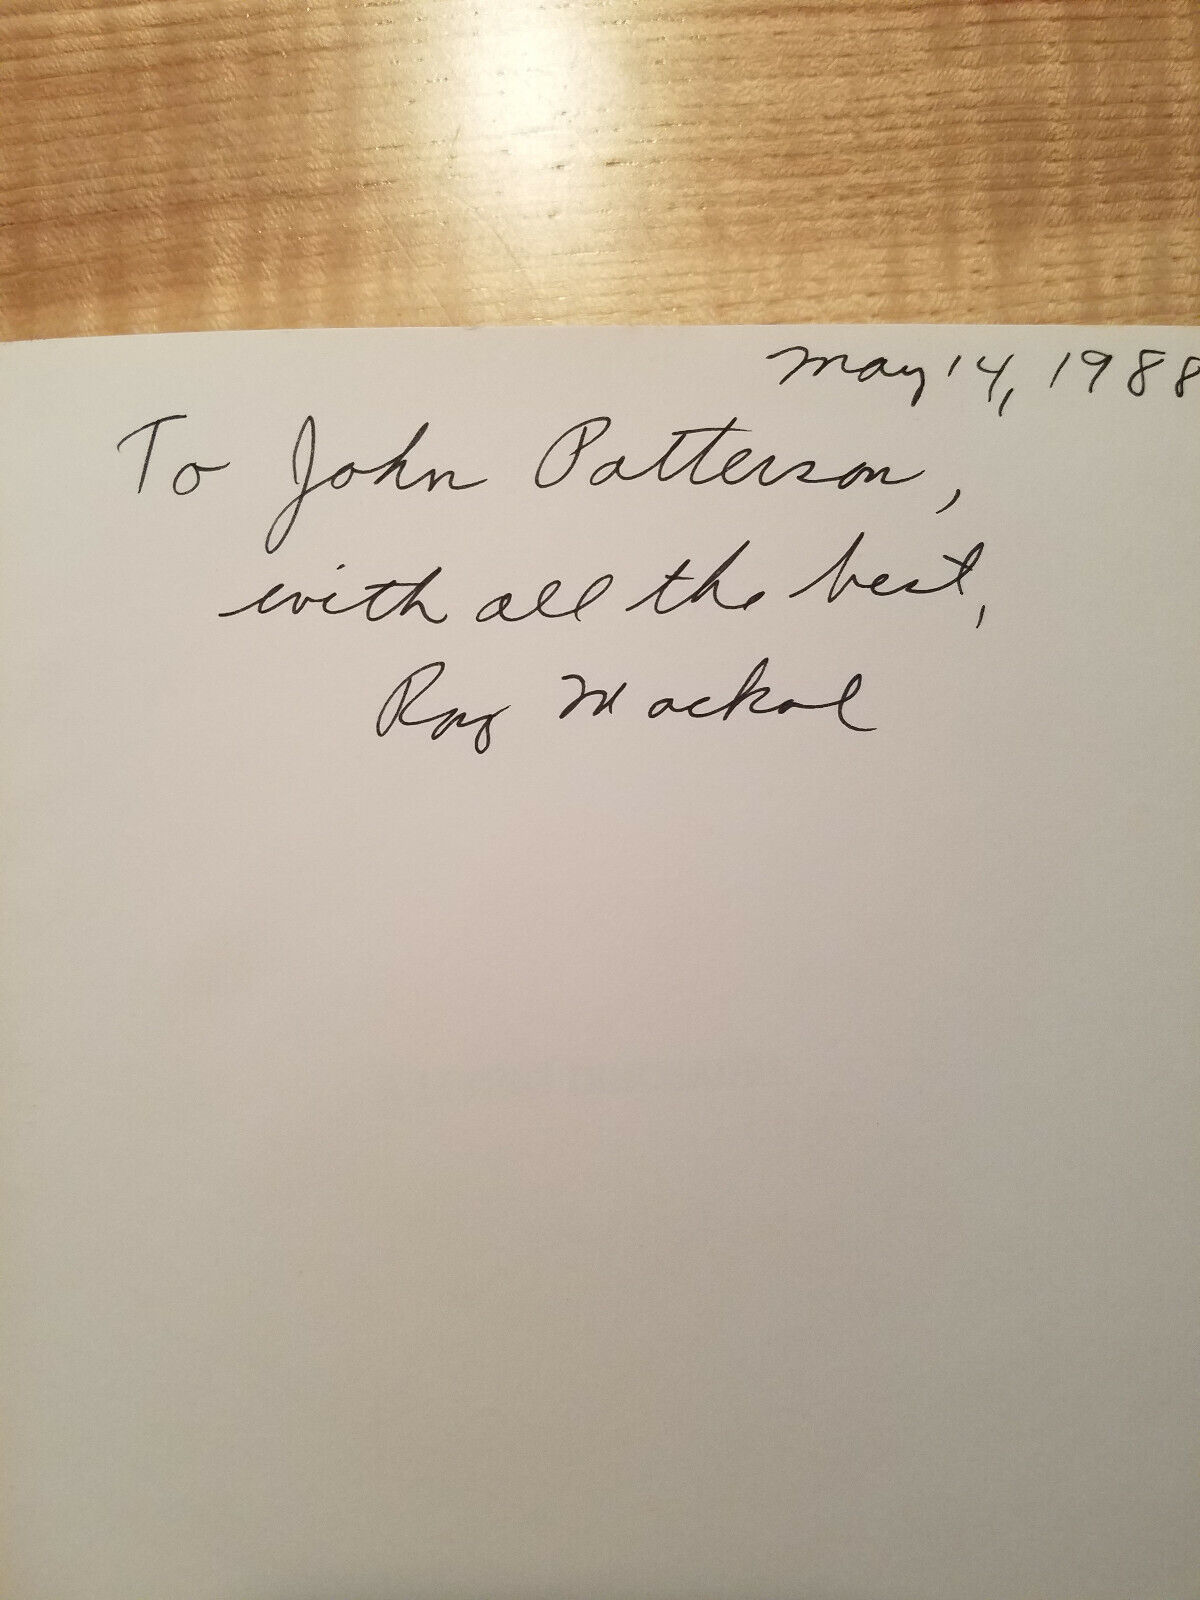 May 14, 1988
To John Patterson,
with all the best,
Roy Mackal